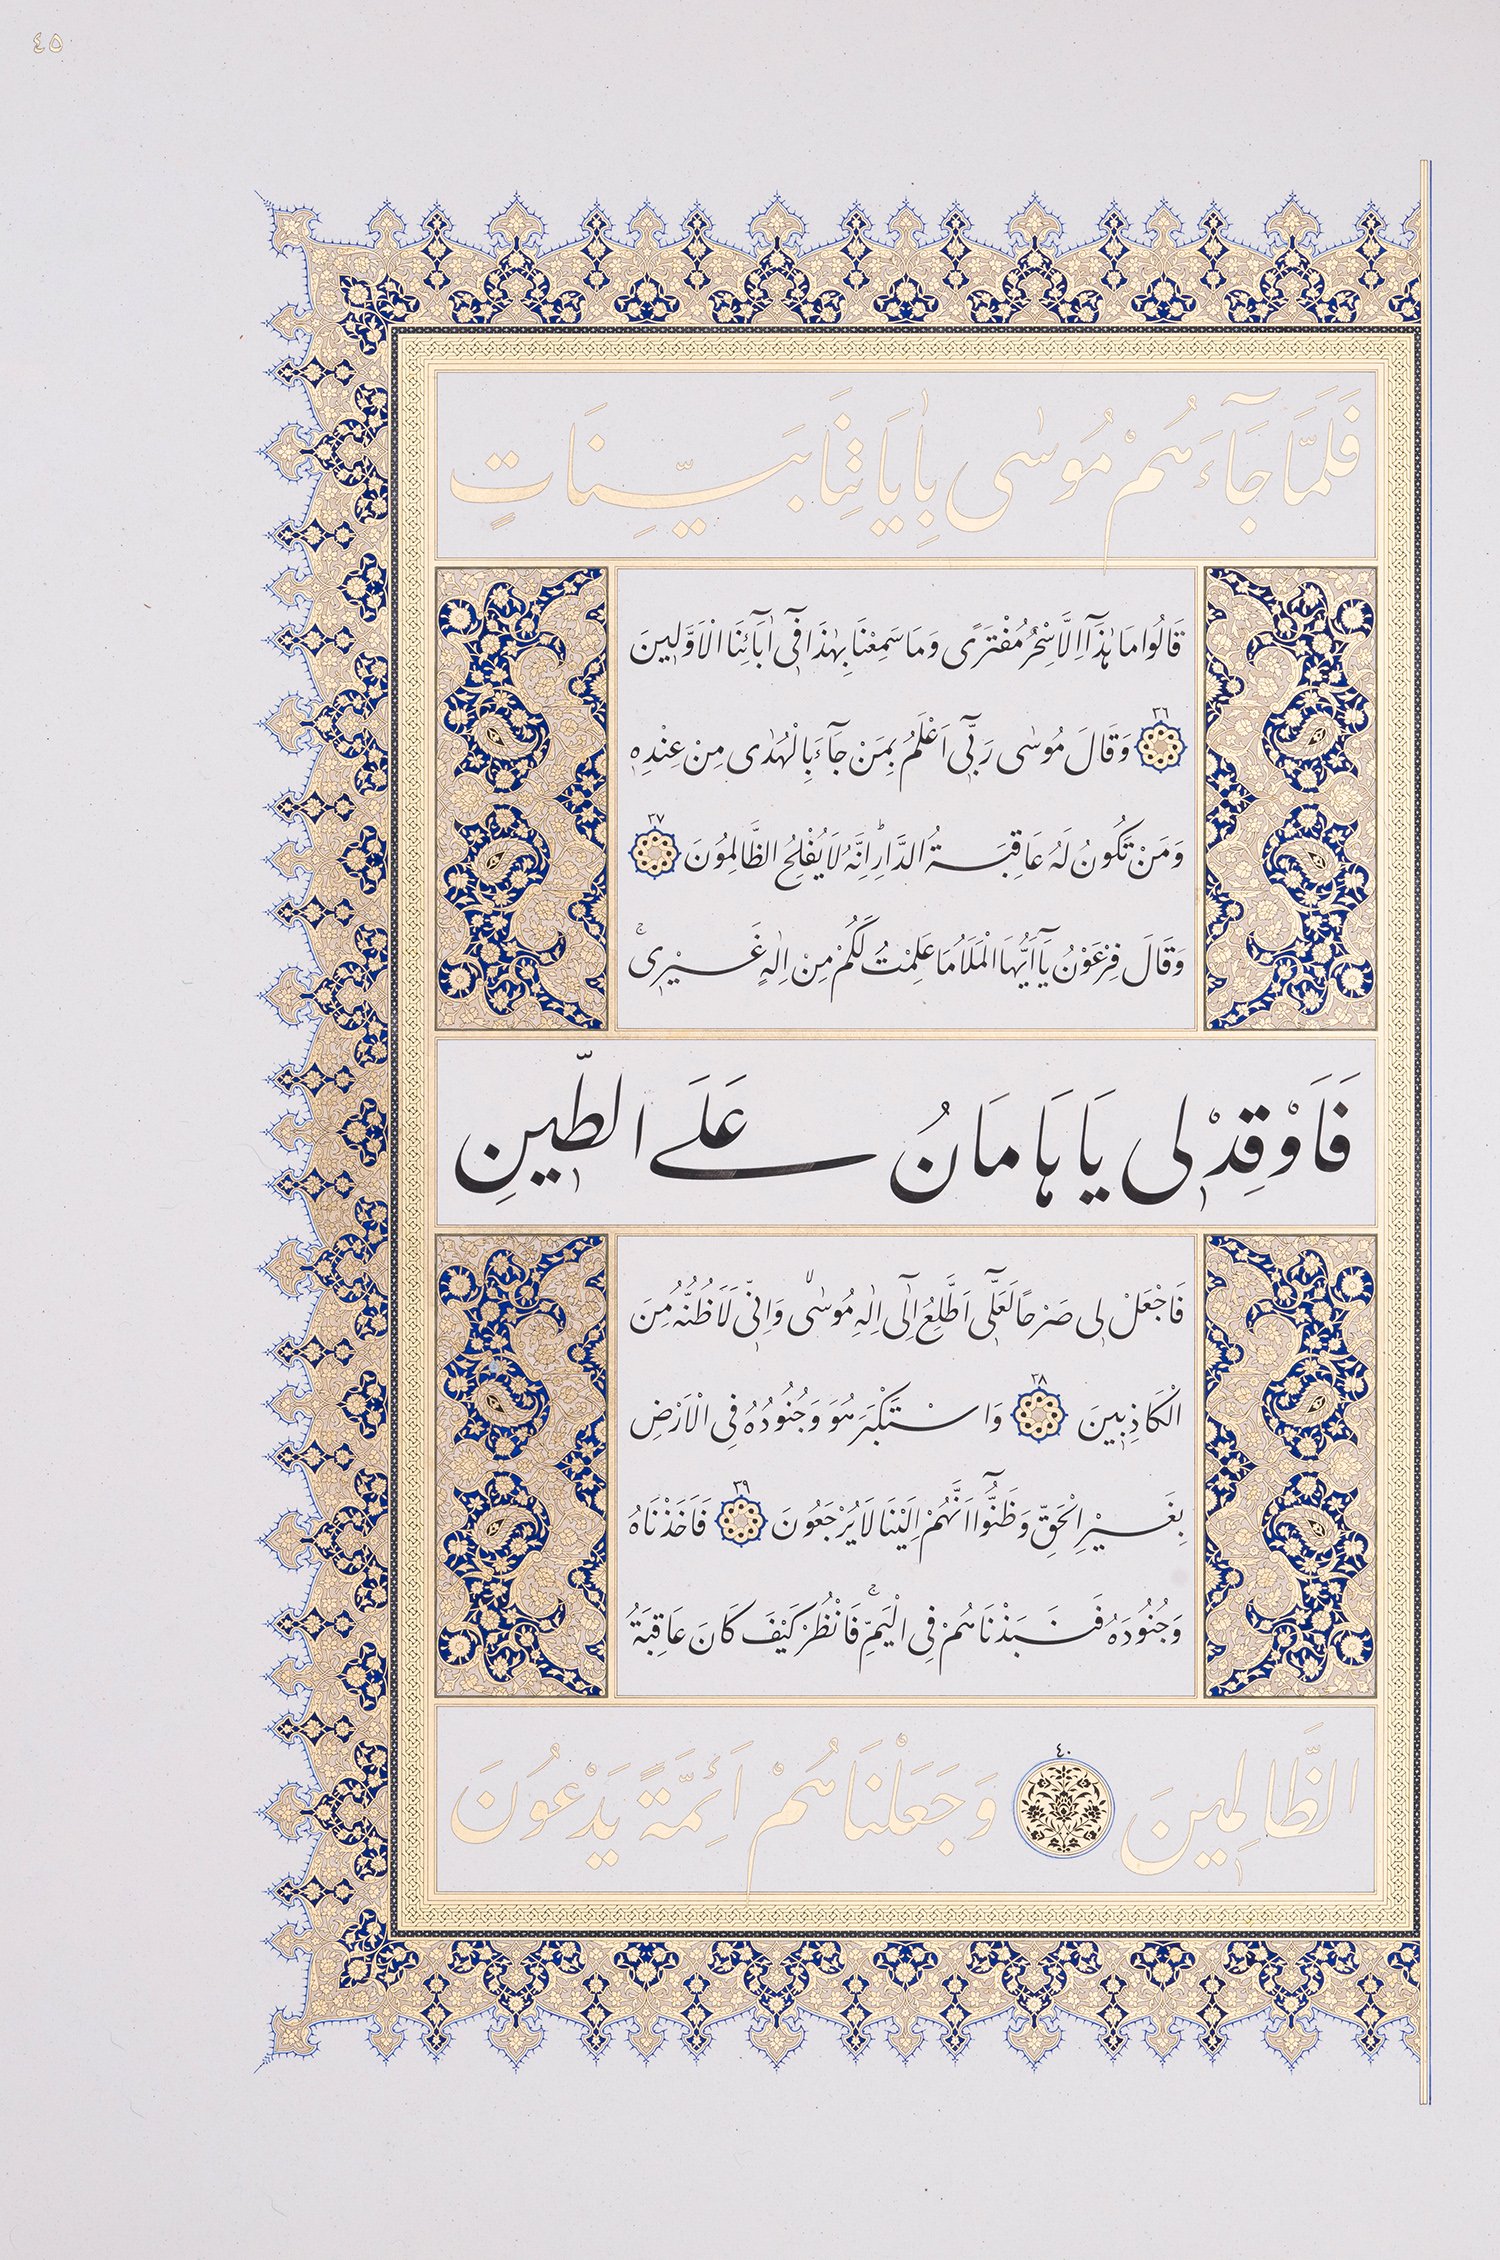 ٤٥
فَلَمَّا جَآءَهُمْ مُوسٰى بِاٰيَاتِنَا بَيِّنَاتٍ
قَالُوا مَا هٰذَآ اِلَّا سِحْرٌ مُفْتَرًى وَمَا سَمِعْنَا بِهٰذَا فٖٓى اٰبَآئِنَا الْاَوَّلٖينَ
٣٦ وَقَالَ مُوسٰى رَبّٖٓى اَعْلَمُ بِمَنْ جَآءَ بِالْهُدٰى مِنْ عِنْدِهٖ
وَمَنْ تَكُونُ لَهُ عَاقِبَةُ الدَّارِؕ اِنَّهُ لَا يُفْلِحُ الظَّالِمُونَ ٣٧
وَقَالَ فِرْعَوْنُ يَآ اَيُّهَا الْمَلَاُ مَا عَلِمْتُ لَكُمْ مِنْ اِلٰهٍ غَيْرٖىۚ
فَاَوْقِدْ لٖى يَا هَامَانُ عَلَى الطّٖينِ
فَاجْعَلْ لٖى صَرْحًا لَعَلّٖٓى اَطَّلِعُ اِلٰٓى اِلٰهِ مُوسٰىۙ وَاِنّٖى لَاَظُنُّهُ مِنَ
الْكَاذِبٖينَ ٣٨ وَاسْتَكْبَرَ هُوَ وَجُنُودُهُ فِى الْاَرْضِ
بِغَيْرِ الْحَقِّ وَظَنُّٓوا اَنَّهُمْ اِلَيْنَا لَا يُرْجَعُونَ ٣٩ فَاَخَذْنَاهُ
وَجُنُودَهُ فَنَبَذْنَاهُمْ فِى الْيَمِّۚ فَانْظُرْ كَيْفَ كَانَ عَاقِبَةُ
الظَّالِمٖينَ ٤٠ وَجَعَلْنَاهُمْ اَئِمَّةً يَدْعُونَ